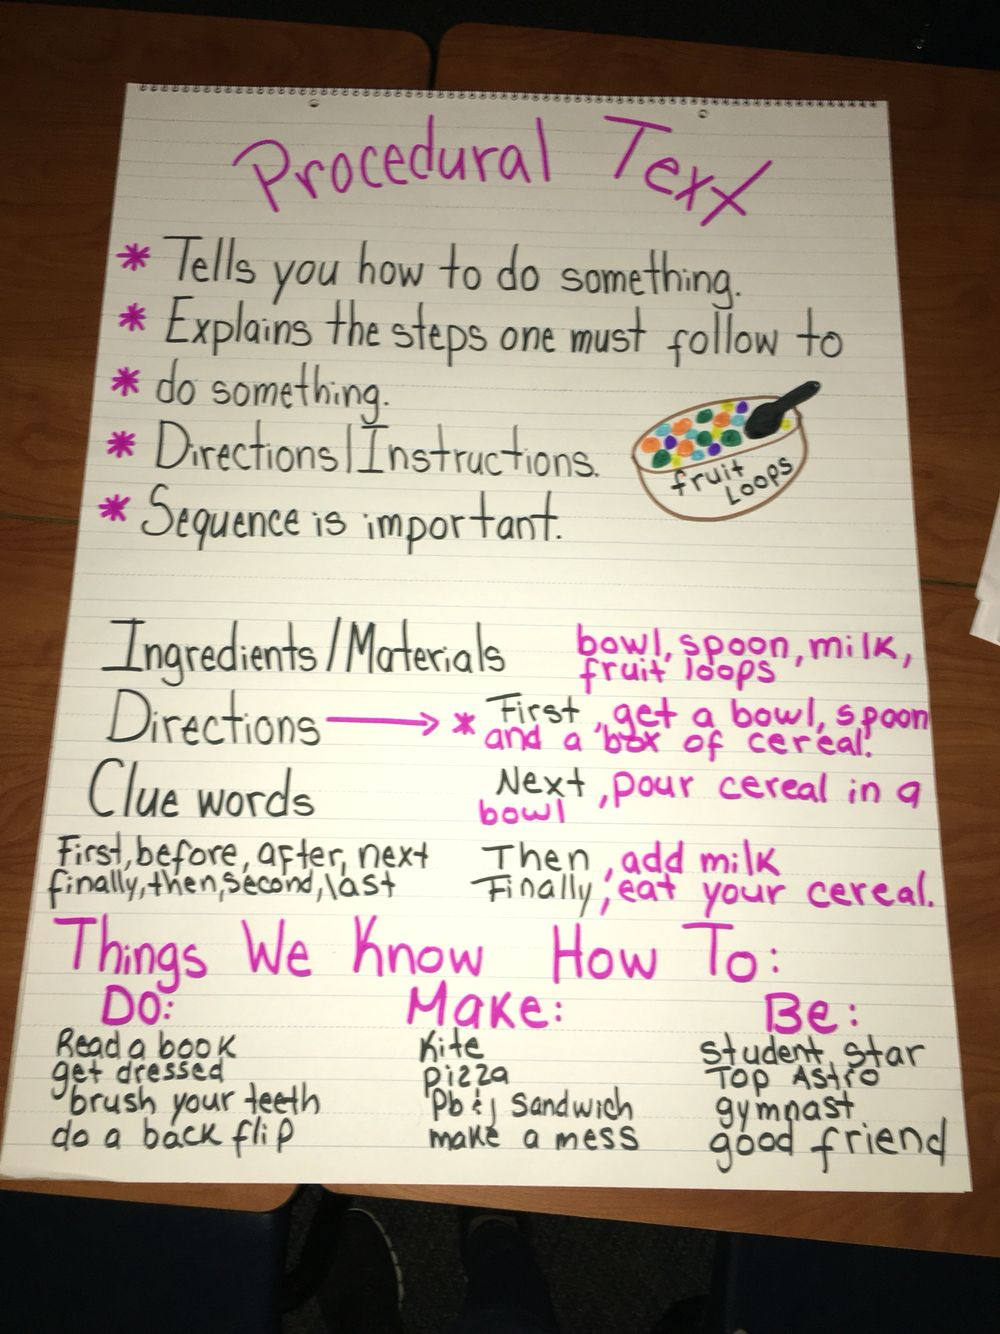 Procedural Text
* Tells you how to do something.
* Explains the steps one must follow to
* do something.
* Directions/Instructions.
* Sequence is important.
fruit
Loops
Ingredients/Materials
bowl, spoon, milk,
fruit loops
Directions → * First, get a bowl, spoon
and a box of cereal.
Clue words
Next, pour cereal in a
bowl
First, before, after, next
finally, then, second, last
Then, add milk
Finally, eat your cereal.
Things We Know How To:
Do:
Read a book
get dressed
brush your teeth
do a back flip
Make:
Kite
pizza
Pb & j sandwich
make a mess
Be:
student, star
Top Astro
gymnast
good friend